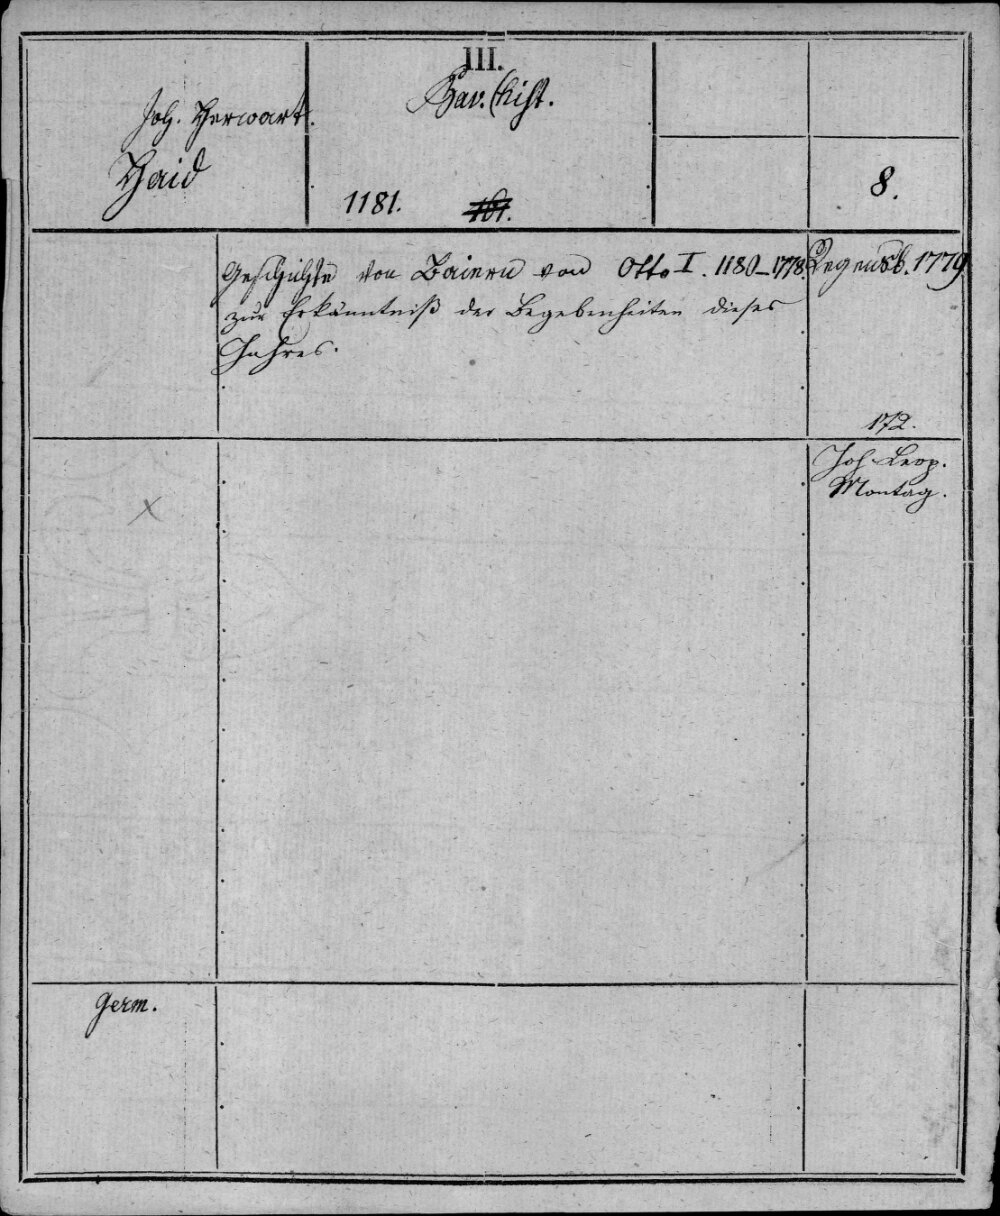 III.
Bav. hist.
Joh. Herwart.
Haid
1181.
161.
8.
Geschichte von Baiern von Otto I. 1180–1778
zur Erkänntniß der Begebenheiten dieses
Jahres.
Regensb. 1779
172.
Joh. Leop.
Montag.
Germ.